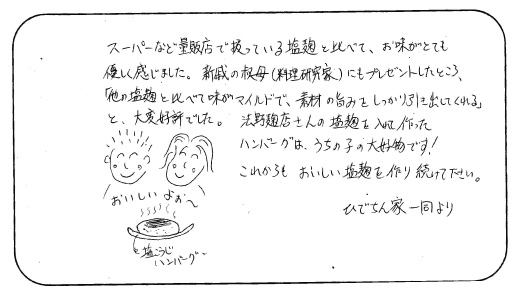 スーパーなど量販店で扱っている塩麹と比べて、お味がとても
優しく感じました。親戚の叔母(料理研究家)にもプレゼントしたところ、
「他の塩麹と比べて味がマイルドで、素材の旨みをしっかり引き出してくれる」
と、大変好評でした。法野麹店さんの塩麹を入れて作った
ハンバーグは、うちの子の大好物です!
これからも おいしい塩麹を作り続けて下さい。
ひでちん家一同より
おいしいよぉ〜
塩こうじ
ハンバーグ〜